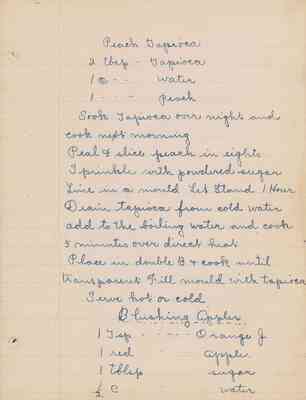 Peach Tapioca
2 tbsp - Tapioca
1 c - - water
1 - - - - Peach
Soak Tapioca over night and
cook next morning
Peal & slice peach in eights
Sprinkle with powdered sugar
Line in a mould Let Stand 1 Hour
Drain tapioca from cold water
add to the boiling water and cook
5 minutes over direct heat
Place in double B & cook until
transparent Fill mould with tapioca
Serve hot or cold
Blushing Apples
1 Tsp - - - - - Orange J
1 red apple
1 tblsp sugar
½ C water